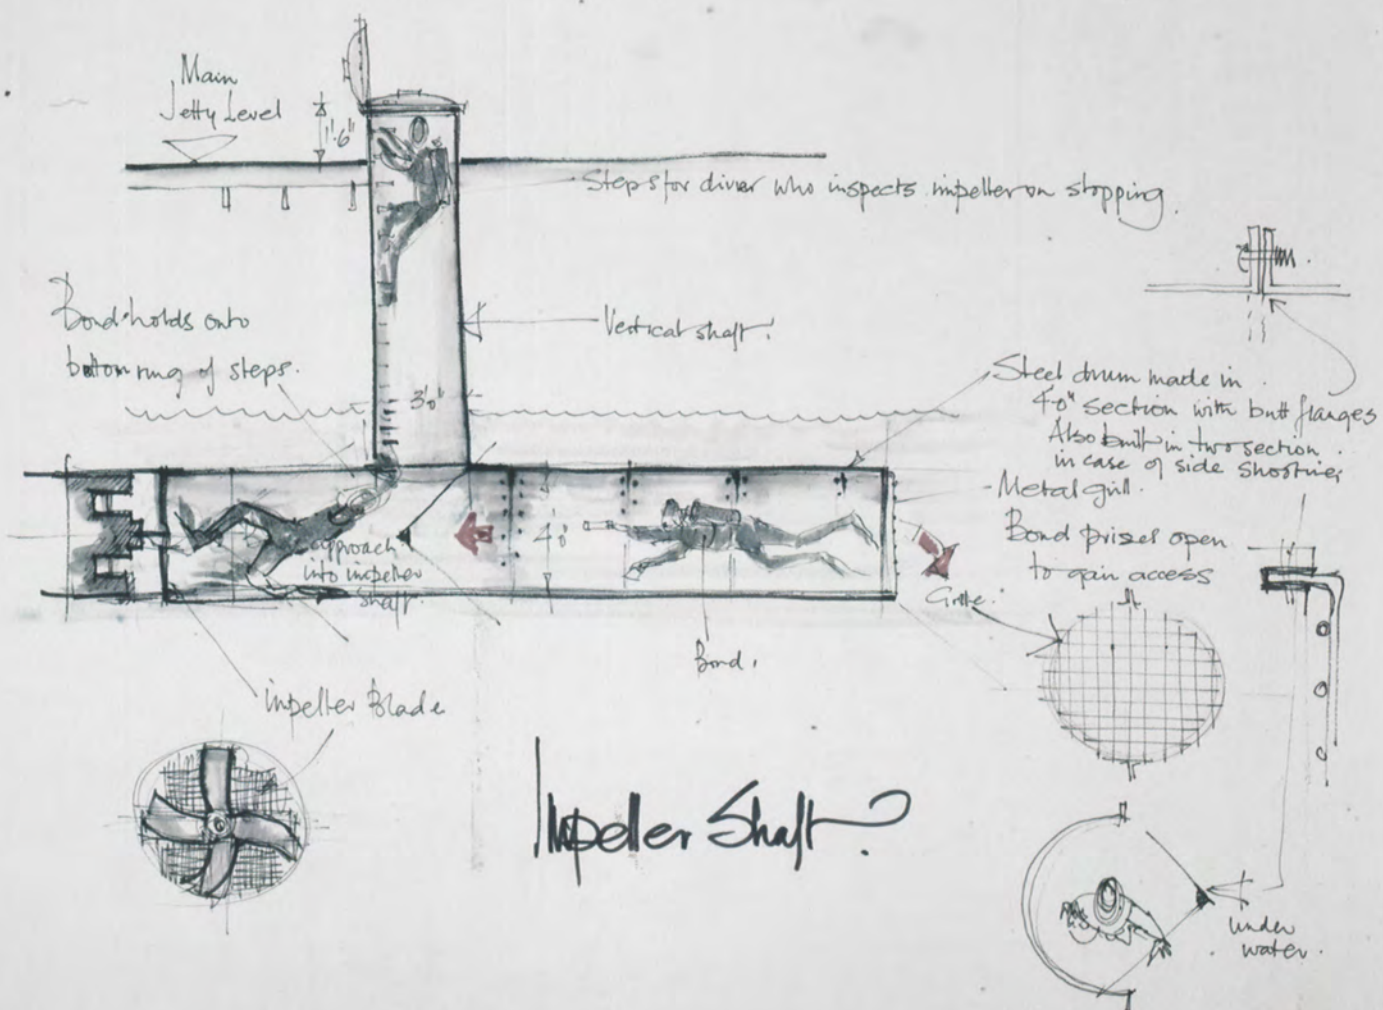 Main
Jetty Level
1'.6"
Steps for diver who inspects impeller on stopping.
Bond holds onto
bottom rung of steps.
Vertical shaft.
3'0"
Steel drum made in
4'-0" section with butt flanges
Also built in two section
in case of side shooting
Metal grill.
Bond prizes open
to gain access
4'0"
approach
into impeller
shaft.
Grille.
Bond.
impeller Blade
Impeller Shaft
under
water.